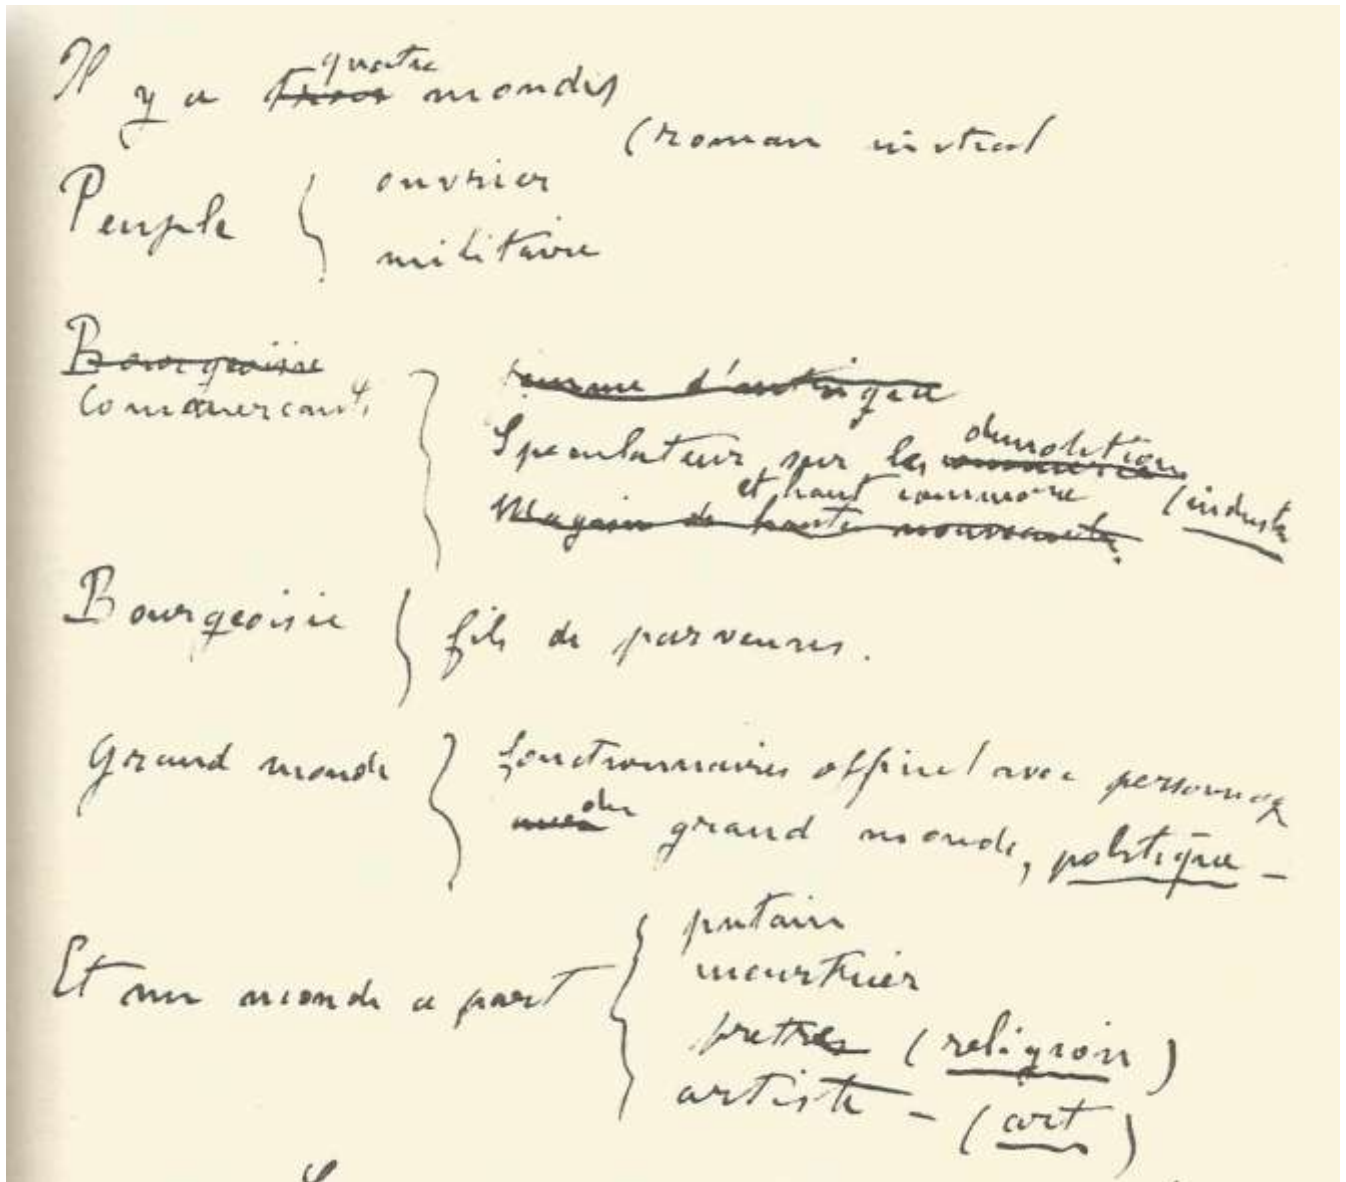 Il y a trois quatre mondes
(roman initial
Peuple { ouvrier
militaire
Bourgeoisie
Commerçants } femme d'intrigue
Speculateur sur les démolitions
et haut commerce (industrie
Magasin de hautes nouveautés.
Bourgeoisie { fils de parvenus.
Grand monde } fonctionnaires officiel avec personnag
avec du grand monde, politique -
Et un monde a part { putain
meurtrier
pretres (religion)
artiste - (art)